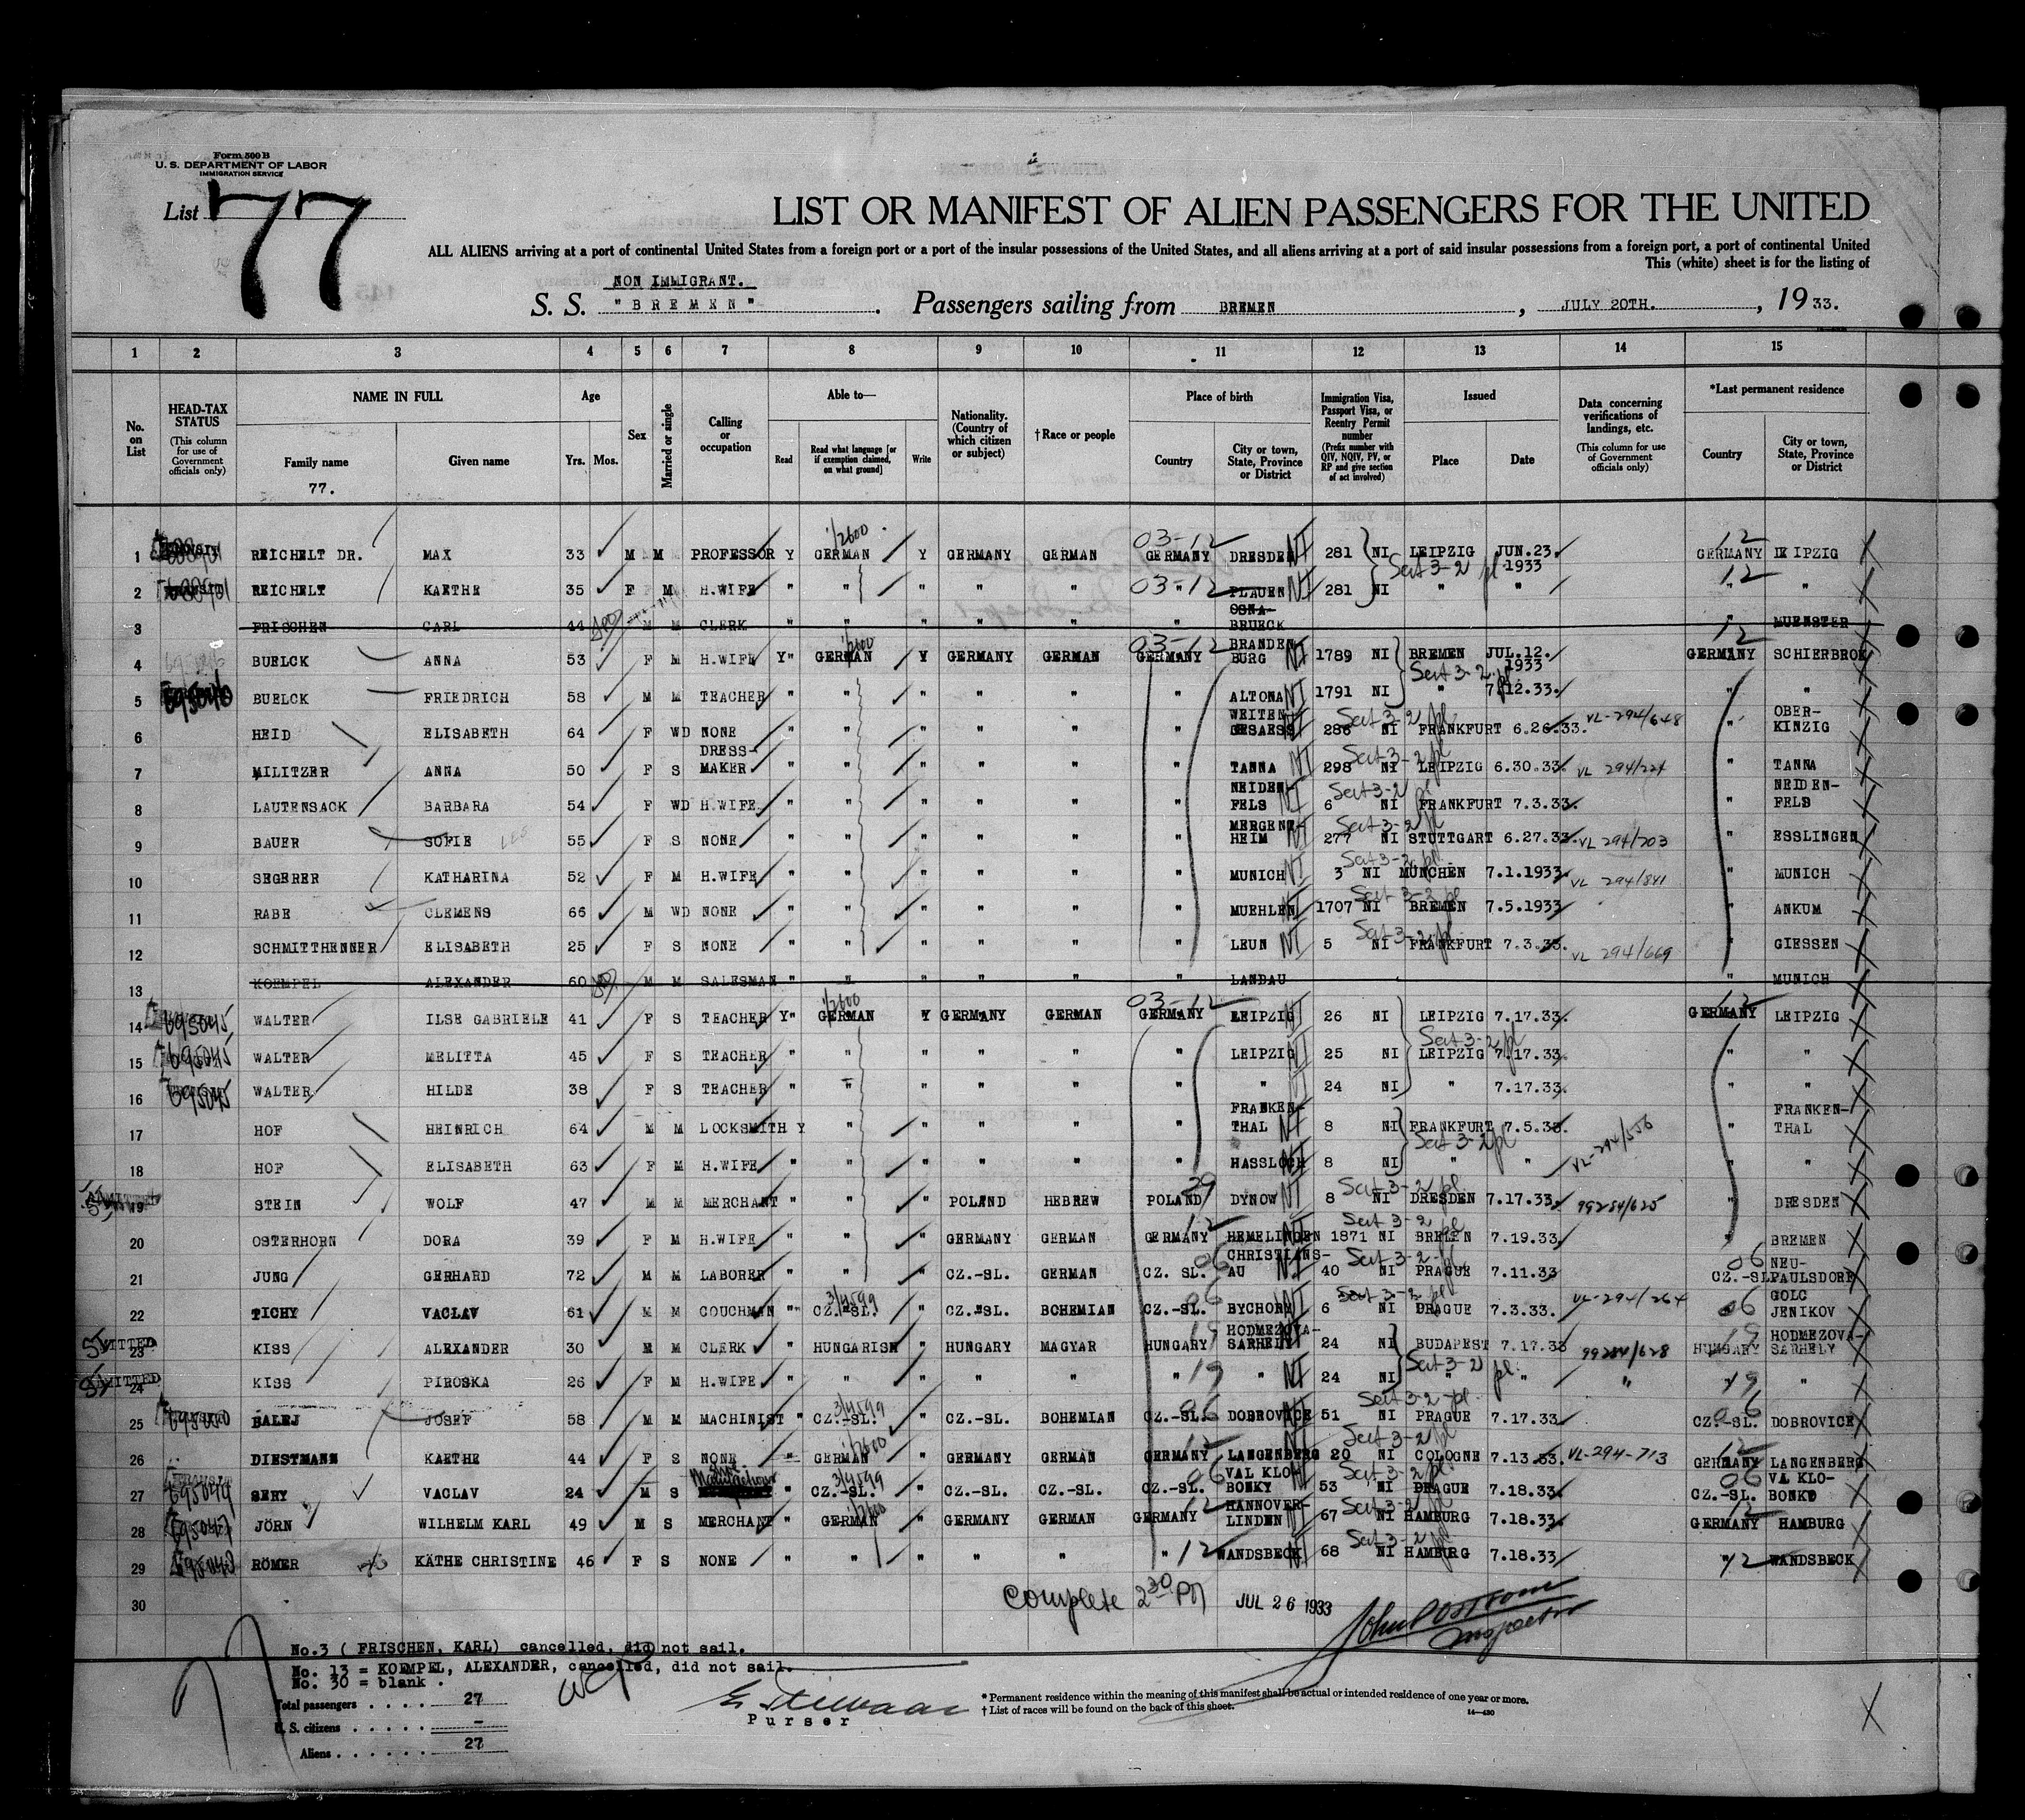 Form 500 B
U. S. DEPARTMENT OF LABOR
IMMIGRATION SERVICE
List 77
LIST OR MANIFEST OF ALIEN PASSENGERS FOR THE UNITED
ALL ALIENS arriving at a port of continental United States from a foreign port or a port of the insular possessions of the United States, and all aliens arriving at a port of said insular possessions from a foreign port, a port of continental United
This (white) sheet is for the listing of
NON IMMIGRANT.
S. S. "BREMEN". Passengers sailing from BREMEN, JULY 20TH., 1933.
1 2 3 4 5 6 7 8 9 10 11 12 13 14 15
No. on List
HEAD-TAX STATUS (This column for use of Government officials only)
NAME IN FULL
Family name
77.
Given name
Age
Yrs. Mos.
Sex
Married or single
Calling or occupation
Able to—
Read
Read what language [or if exemption claimed, on what ground]
Write
Nationality. (Country of which citizen or subject)
†Race or people
Place of birth
Country
City or town, State, Province or District
Immigration Visa, Passport Visa, or Reentry Permit number (Prefix number with QIV, NQIV, PV, or RP and give section of act involved)
Issued
Place
Date
Data concerning verifications of landings, etc. (This column for use of Government officials only)
*Last permanent residence
Country
City or town, State, Province or District
1 REICHELT DR. MAX 33 M M PROFESSOR Y GERMAN Y GERMANY GERMAN 03-12 GERMANY DRESDEN NI 281 NI LEIPZIG JUN.23. 1933 12 GERMANY LEIPZIG
2 REICHELT KAETHE 35 F M H.WIFE " " " " " 03-12 " PLAUEN NI 281 NI " " 12 " "
3 FRISCHEN CARL 44 M M CLERK " " " " " " OSNA-BRUECK " MUENSTER
4 BUELCK ANNA 53 F M H.WIFE Y" GERMAN Y GERMANY GERMAN 03-12 GERMANY BRANDENBURG NI 1789 NI BREMEN JUL.12. 1933 12 GERMANY SCHIERBROK
5 BUELCK FRIEDRICH 58 M M TEACHER " " " " " " ALTONA NI 1791 NI " 7.12.33. " "
6 HEID ELISABETH 64 F WD NONE " " " " " " WEITEN-GESAESS NI 286 NI FRANKFURT 6.26.33. VL-294/648 " OBER-KINZIG
7 MILITZER ANNA 50 F S DRESS-MAKER " " " " " " TANNA NI 298 NI LEIPZIG 6.30.33. VL 294/224 " TANNA
8 LAUTENSACK BARBARA 54 F WD H.WIFE " " " " " " NEIDEN-FELS NI 6 NI FRANKFURT 7.3.33. " NEIDEN-FELS
9 BAUER SOFIE 55 F S NONE " " " " " " MERGENT-HEIM NI 277 NI STUTTGART 6.27.33. VL 294/203 " ESSLINGEN
10 SEGERER KATHARINA 52 F M H.WIFE " " " " " " MUNICH NI 3 NI MUNCHEN 7.1.1933. VL 294/841 " MUNICH
11 RABE CLEMENS 66 M WD NONE " " " " " " MUEHLEN 1707 NI BREMEN 7.5.1933 " ANKUM
12 SCHMITTHENNER ELISABETH 25 F S NONE " " " " " " LEUN NI 5 NI FRANKFURT 7.3.33. VL 294/669 " GIESSEN
13 KOEMPEL ALEXANDER 60 M M SALESMAN " " " " " " LANDAU " MUNICH
14 WALTER ILSE GABRIELE 41 F S TEACHER Y" GERMAN Y GERMANY GERMAN 03-12 GERMANY LEIPZIG NI 26 NI LEIPZIG 7.17.33. 12 GERMANY LEIPZIG
15 WALTER MELITTA 45 F S TEACHER " " " " " " LEIPZIG NI 25 NI LEIPZIG 7.17.33. " "
16 WALTER HILDE 38 F S TEACHER " " " " " " " NI 24 NI " 7.17.33. " "
17 HOF HEINRICH 64 M M LOCKSMITH Y " " " " " FRANKEN-THAL NI 8 NI FRANKFURT 7.5.33. VL-294/556 " FRANKEN-THAL
18 HOF ELISABETH 63 F M H.WIFE " " " " " " HASSLOCH 8 NI " " " "
19 STEIN WOLF 47 M M MERCHANT " " " POLAND HEBREW POLAND 29 DYNOW NI 8 NI DRESDEN 7.17.33. 99284/625 " DRESDEN
20 OSTERHORN DORA 39 F M H.WIFE " " " GERMANY GERMAN GERMANY 12 HEMELINGEN 1871 NI BREMEN 7.19.33. " BREMEN
21 JUNG GERHARD 72 M M LABORER " " " CZ.-SL. GERMAN CZ. SL. 06 CHRISTIANS-AU NI 40 NI PRAGUE 7.11.33 06 CZ.-SL. NEU-PAULSDORF
22 TICHY VACLAV 61 M M COUCHMAN " CZ.-SL. " CZ.-SL. BOHEMIAN CZ.-SL. 06 BYCHORY NI 6 NI PRAGUE 7.3.33. VL-294/264 06 GOLC JENIKOV
23 KISS ALEXANDER 30 M M CLERK " HUNGARISH " HUNGARY MAGYAR HUNGARY 19 HODMEZOVA-SARHELY 24 NI BUDAPEST 7.17.33 99284/628 19 HUNGARY HODMEZOVA-SARHELY
24 KISS PIROSKA 26 F M H.WIFE " " " " " " 19 " NI 24 NI " " " 19 "
25 BALEJ JOSEF 58 M M MACHINIST " CZ.-SL. " CZ.-SL. BOHEMIAN CZ.-SL. 06 DOBROVICE 51 NI PRAGUE 7.17.33. CZ.-SL. 06 DOBROVICE
26 DIESTMANN KAETHE 44 F S NONE " GERMAN " GERMANY GERMAN GERMANY 12 LANGENBERG 20 NI COLOGNE 7.13.33. VL-294-713 12 GERMANY LANGENBERG
27 SERY VACLAV 24 M S " CZ.-SL. " CZ.-SL. CZ.-SL. CZ.-SL. 06 VAL KLO-BONKY 53 NI PRAGUE 7.18.33. 06 CZ.-SL. VA KLO-BONKO
28 JÖRN WILHELM KARL 49 M S MERCHANT " GERMAN " GERMANY GERMAN GERMANY 12 HANNOVER-LINDEN 67 NI HAMBURG 7.18.33. 12 GERMANY HAMBURG
29 RÖMER KÄTHE CHRISTINE 46 F S NONE " " " " " " 12 WANDSBECK 68 NI HAMBURG 7.18.33. " 12 WANDSBECK
30 Complete 2 30 PM JUL 26 1933
Inspector
No.3 ( FRISCHEN, KARL) cancelled, did not sail.
No. 13 = KOEMPEL, ALEXANDER, cancelled, did not sail.
No. 30 = blank.
Total passengers . . . . 27
U. S. citizens . . . . . –
Aliens . . . . . . 27
Purser
* Permanent residence within the meaning of this manifest shall be actual or intended residence of one year or more.
† List of races will be found on the back of this sheet.
14—430